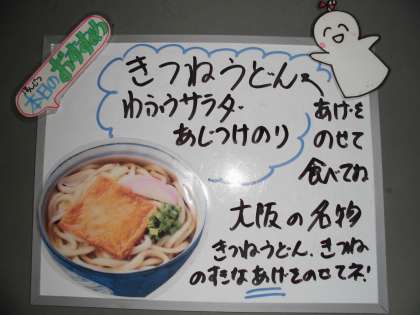 本日の
おかずは
きつねうどん
わふうサラダ
あじつけのり
あげを
のせて
食べてね
大阪の名物
きつねうどん、きつね
のすきなあげをのせてネ!